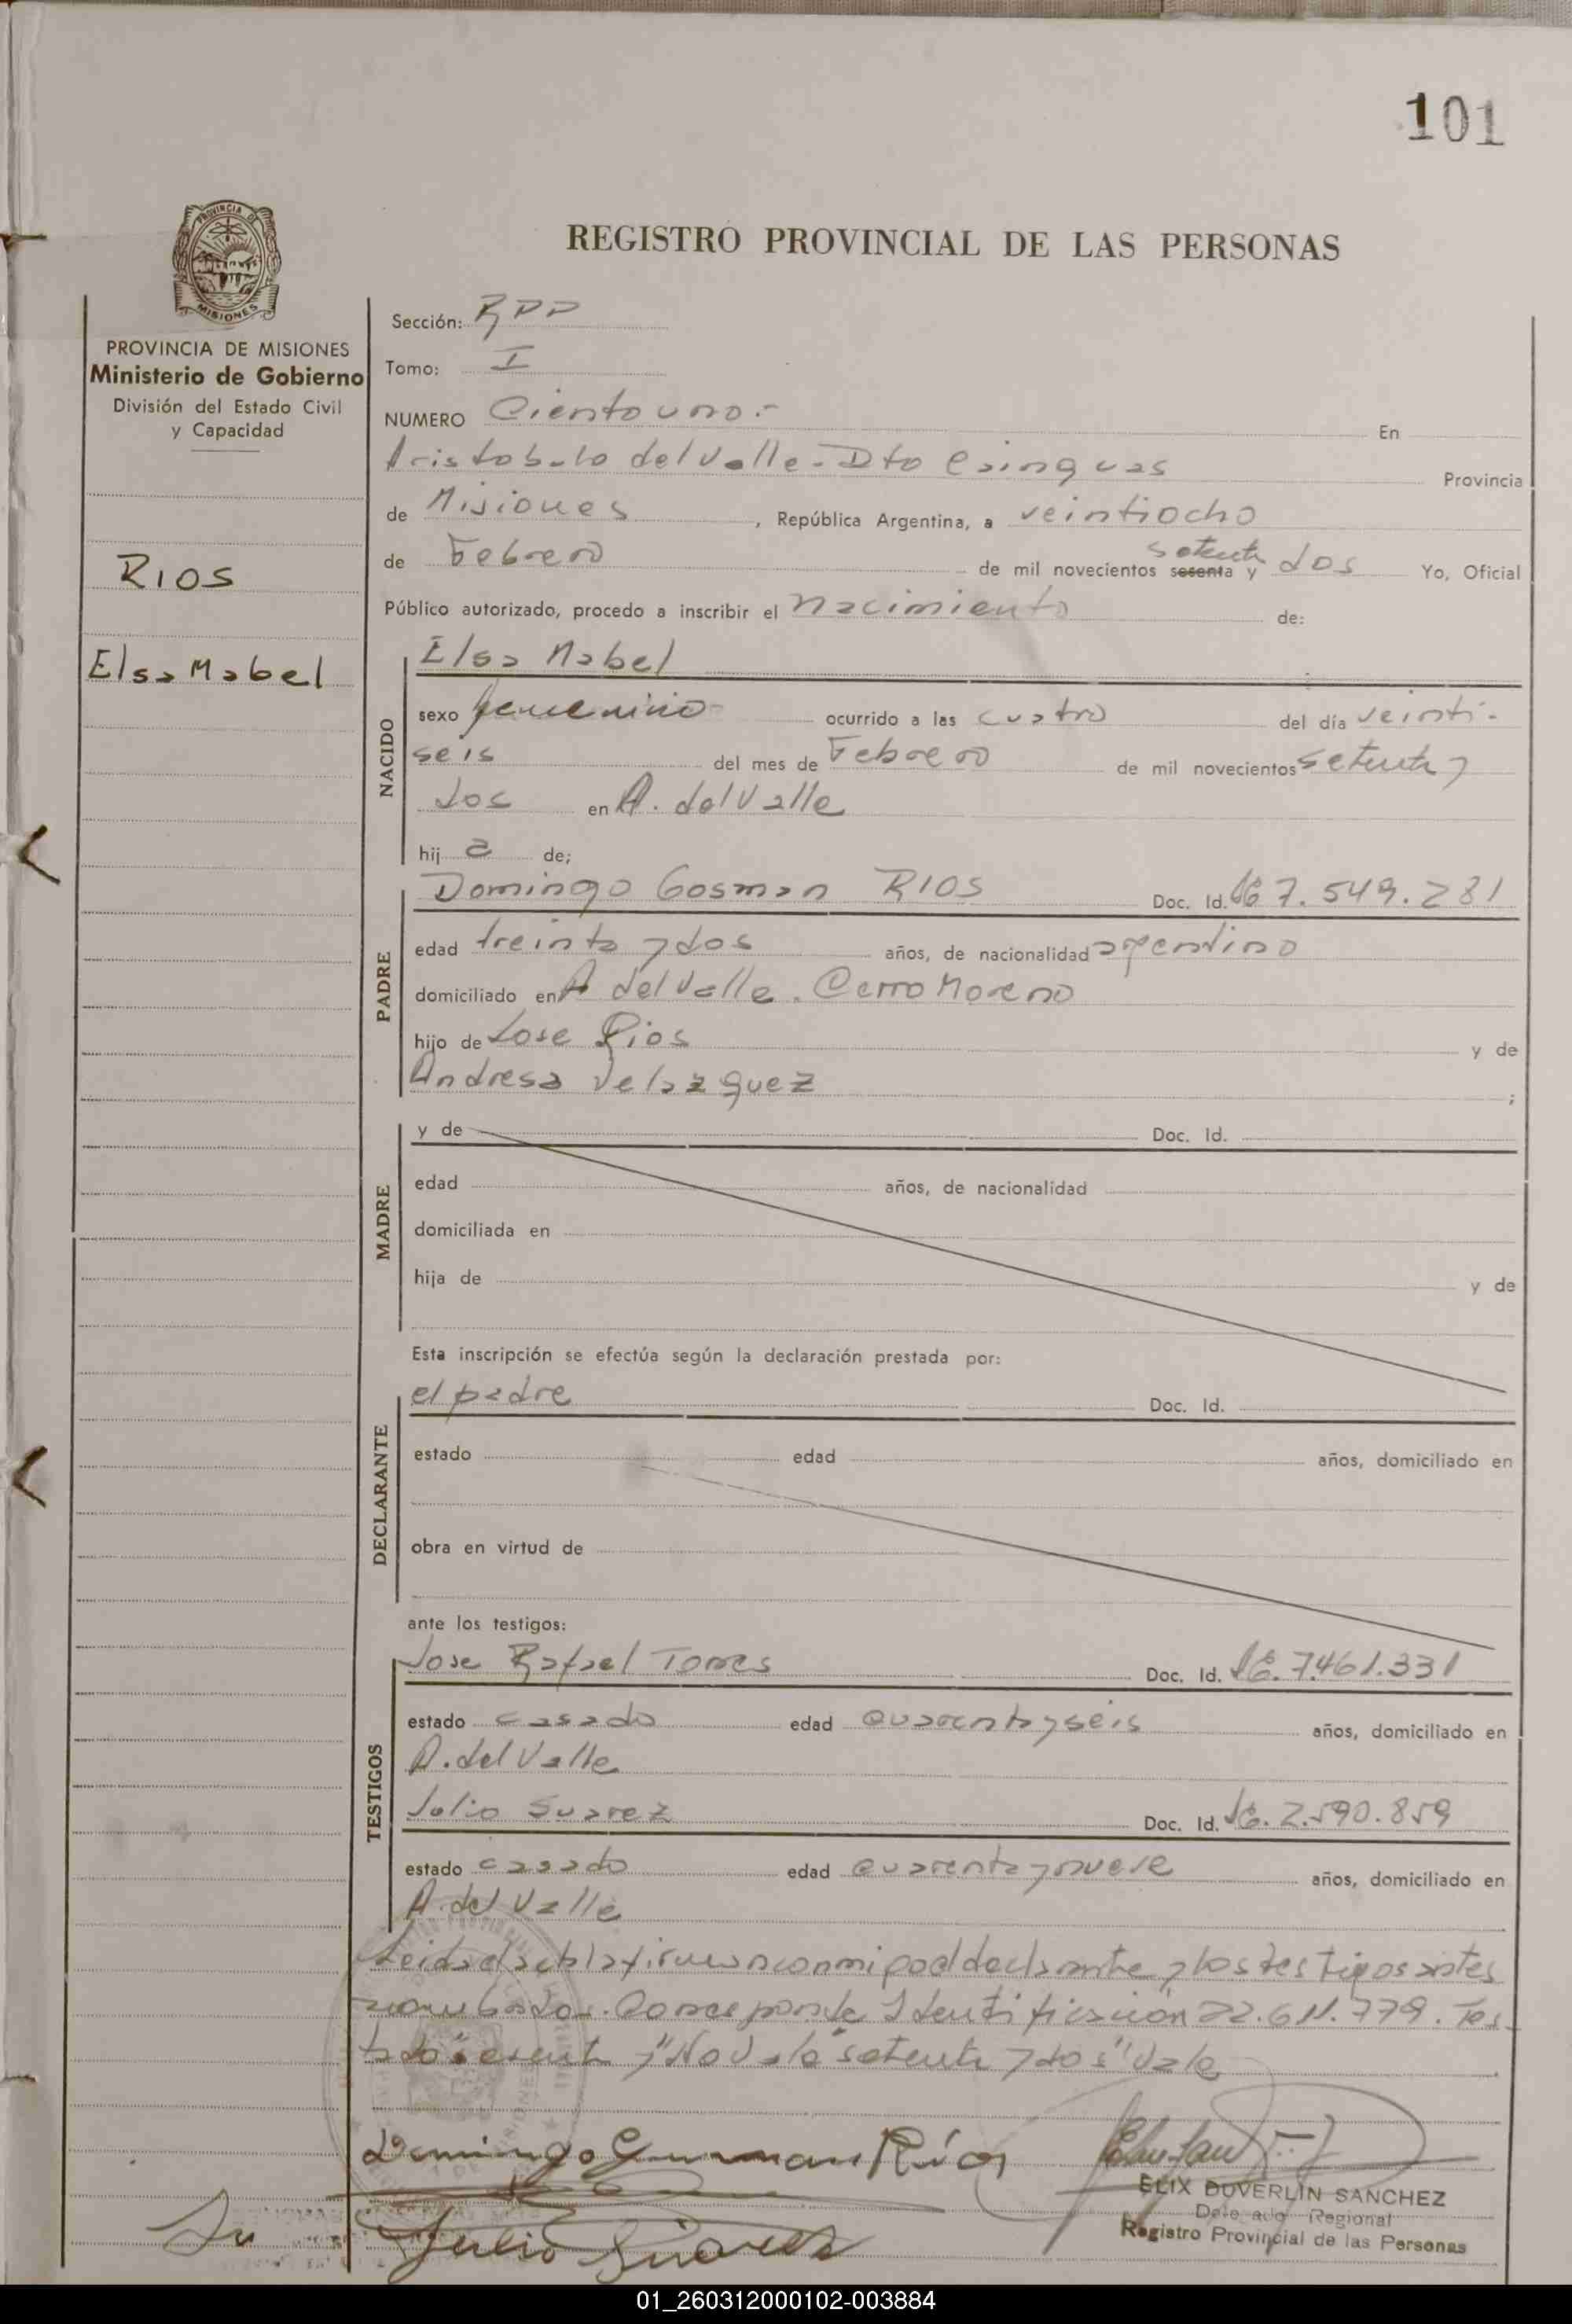 101
PROVINCIA DE
MISIONES
REGISTRO PROVINCIAL DE LAS PERSONAS
PROVINCIA DE MISIONES
Ministerio de Gobierno
División del Estado Civil
y Capacidad
RIOS
Elsa Mabel
Sección: RPP
Tomo: I
NUMERO Ciento uno.- En
Aristobulo del Valle - Dto Cainguas Provincia
de Misiones, República Argentina, a veintiocho
de Febrero de mil novecientos sesenta y setenta dos Yo, Oficial
Público autorizado, procedo a inscribir el nacimiento de:
NACIDO
Elsa Mabel
sexo femenino ocurrido a las cuatro del día veinti-
seis del mes de Febrero de mil novecientos setenta y
dos en A. del Valle
hij a de;
PADRE
Domingo Gosman RIOS Doc. Id. LE 7.549.281
edad treinta y dos años, de nacionalidad argentino
domiciliado en A del Valle. Cerro Moreno
hijo de Jose Rios y de
Andresa Velazquez ;
MADRE
y de Doc. Id.
edad años, de nacionalidad
domiciliada en
hija de y de
Esta inscripción se efectúa según la declaración prestada por:
DECLARANTE
el padre Doc. Id.
estado edad años, domiciliado en
obra en virtud de
ante los testigos:
TESTIGOS
Jose Rafael Torres Doc. Id. LE. 7.461.331
estado casado edad cuarenta y seis años, domiciliado en
A. del Valle
Julio Suarez Doc. Id. LE. 2.590.859
estado casado edad cuarenta y nueve años, domiciliado en
A. del Valle
Leida el acta la firman conmigo el declarante y los testigos antes
nombrados. Corresponde Identificación 22.611.779. Tes-
tado "sesenta y" No Vale "setenta y dos" Vale
Domingo Gusman Ríos
Julio Suarez
ELIX DUVERLIN SANCHEZ
Delegado Regional
Registro Provincial de las Personas
01_260312000102-003884